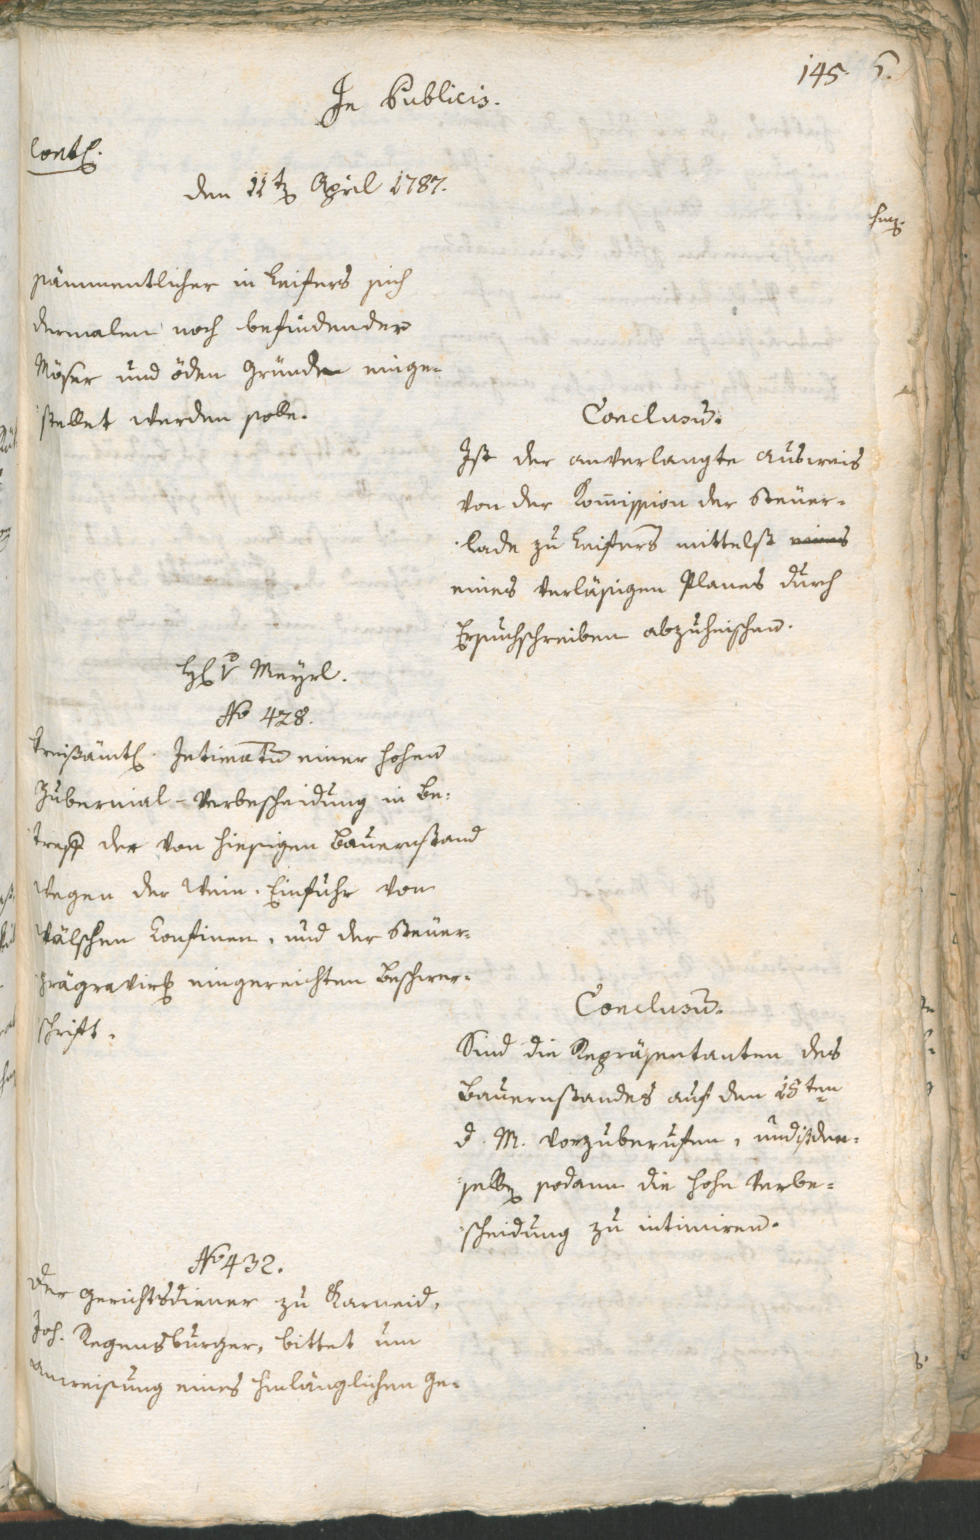 145.
In Publicis.
Contin.
den 11ten April 1787.
sämmentlicher in Leifers sich
dermalen noch befindender
Möser und öden Gründe einge-
stellet werden solle.
Conclusū.
Ist der anverlangte Ausweis
von der Kom̄ission der Steuer-
lade zu Leifers mittelst eines
eines verläsigen Planes durch
Ersuchschreiben abzuheischen.
H v Meyrl.
No 428.
Kreisämtl. Intimatū einer hohen
Gubernial-Verbescheidung in Be-
treff der von hiesigen Bauernstand
wegen der Wein-Einfuhr von
Wälschen Confinen, und der Steuer-
prägravirg eingereichten Beschwer-
schrift.
Conclusū.
Sind die Repräsentanten des
Bauernstandes auf den 18ten
d. M. vorzuberufen, und ist den-
selbn sodann die hohe Verbe-
scheidung zu intimiren.
No 432.
Der Gerichtsdiener zu Karneid,
Joh. Regensburger, bittet um
Anweisung eines hinlänglichen Ge-